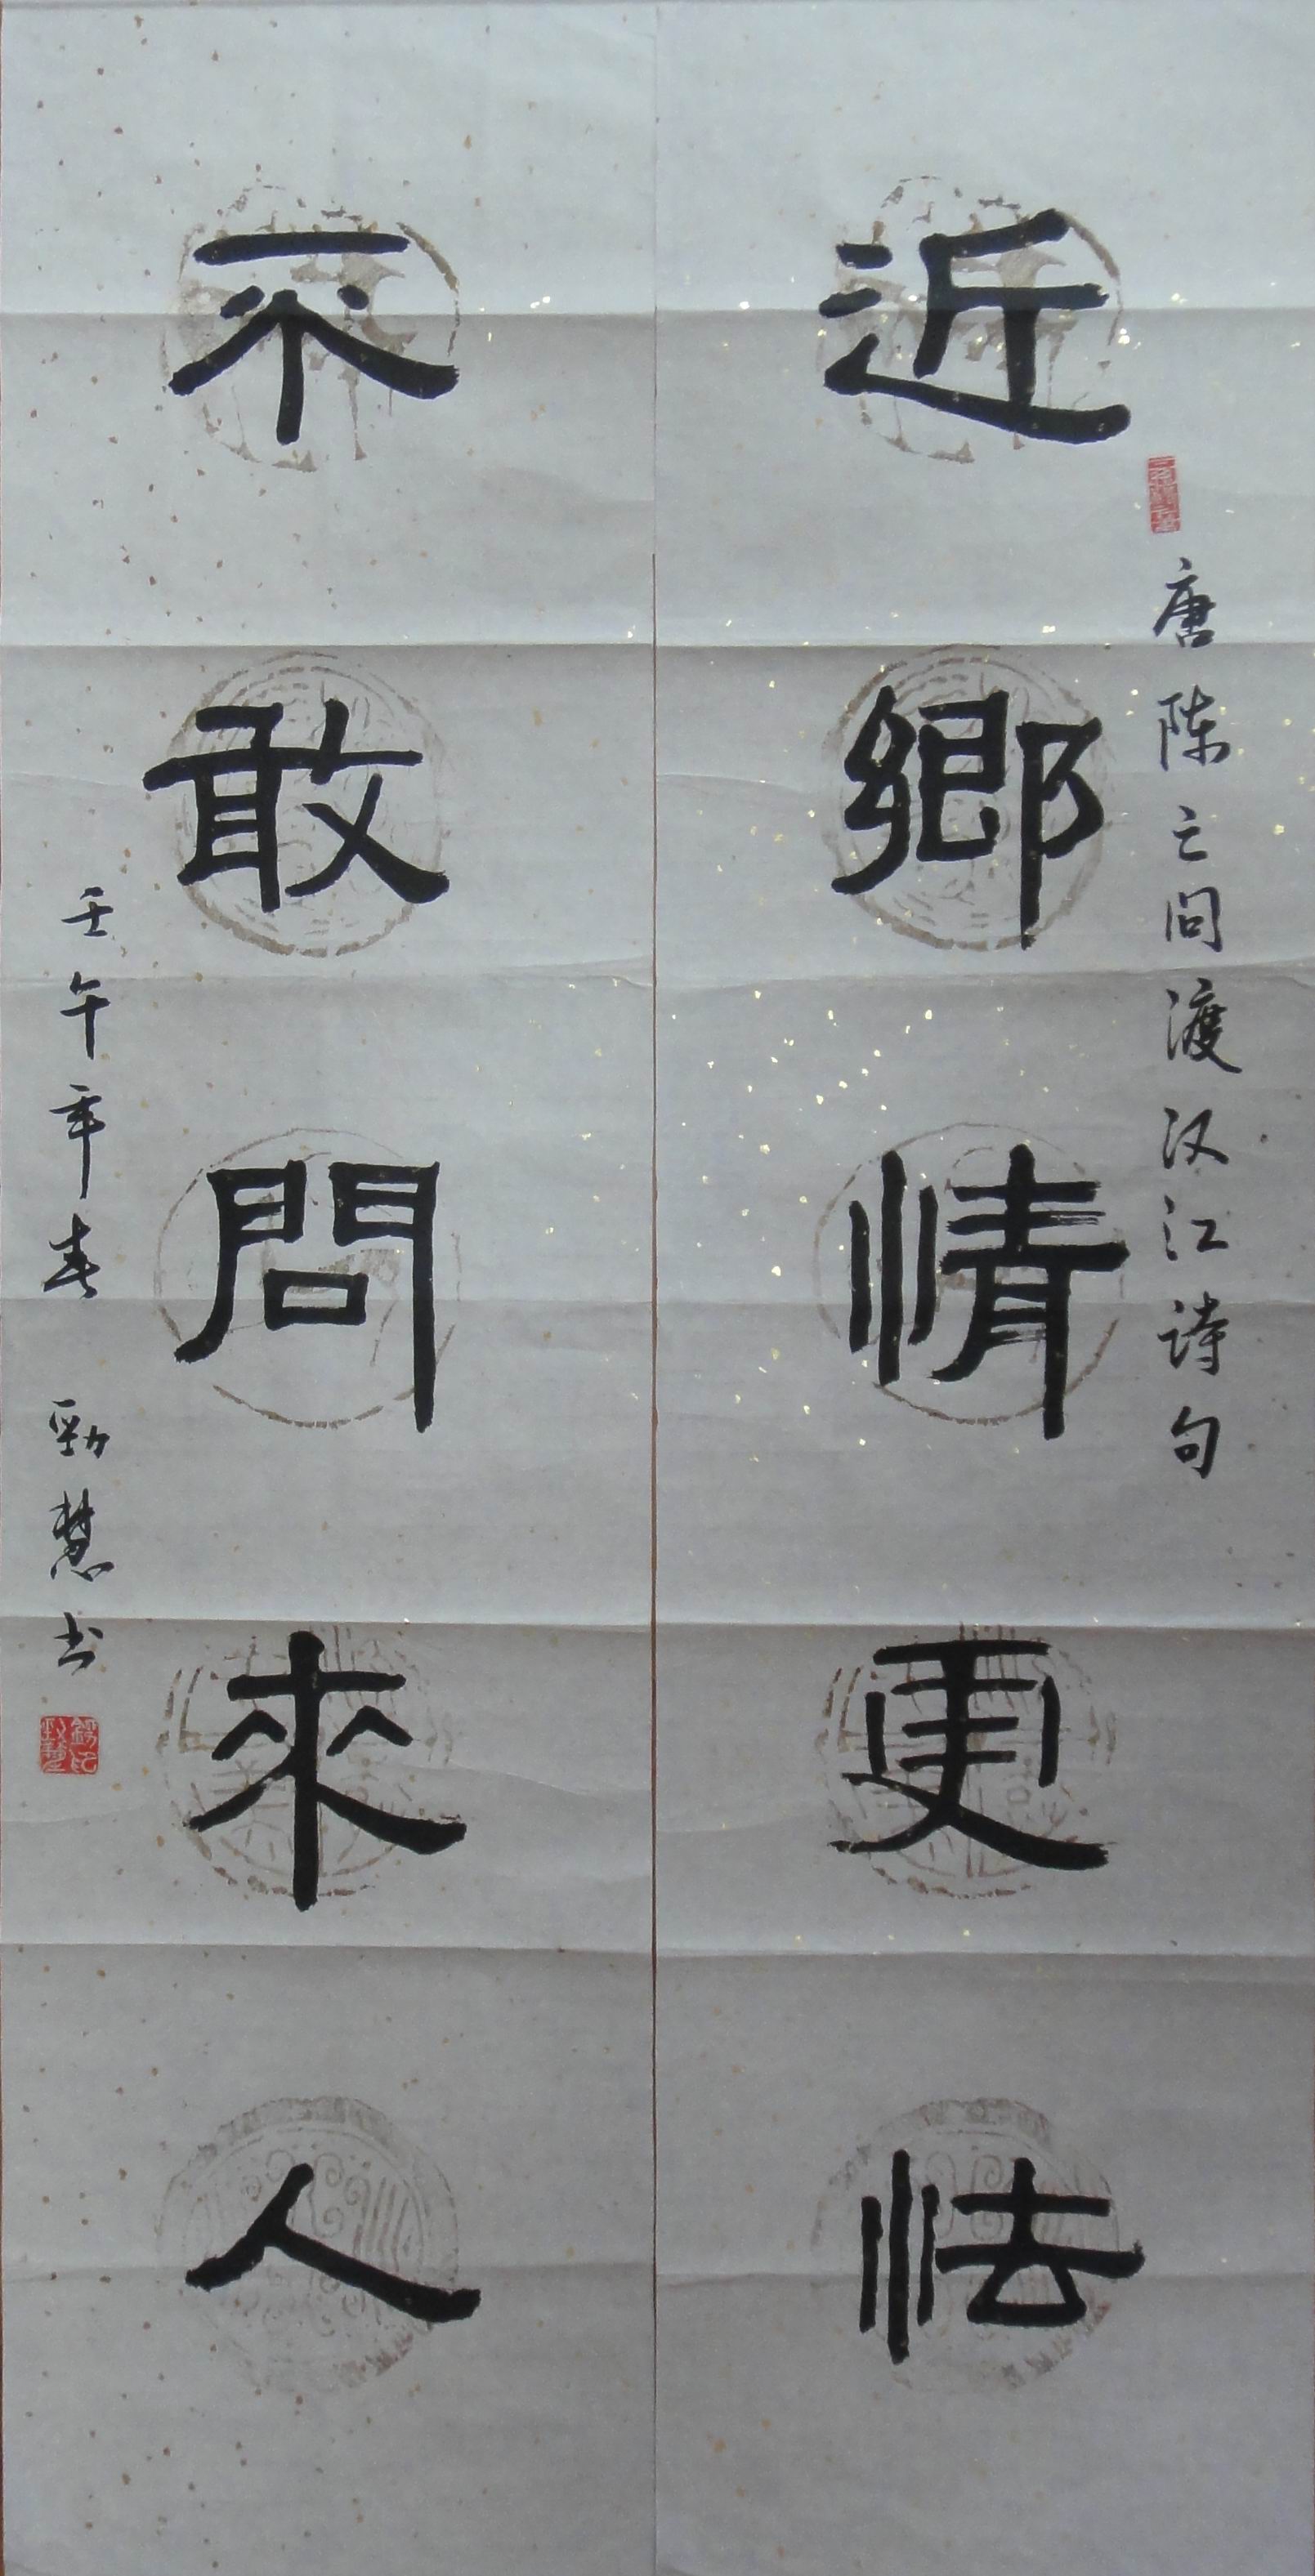 近鄉情更怯
唐陈之问渡汉江诗句
不敢問來人
壬午年春 勁慧书